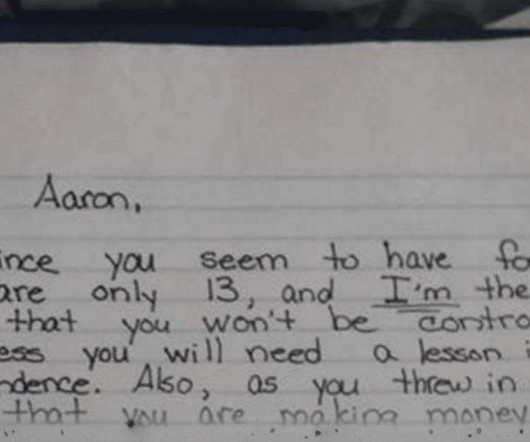 Aaron,
ince you seem to have fo
are only 13, and I'm the
that you won't be contro
ess you will need a lesson i
ndence. Also, as you threw in
that you are making money